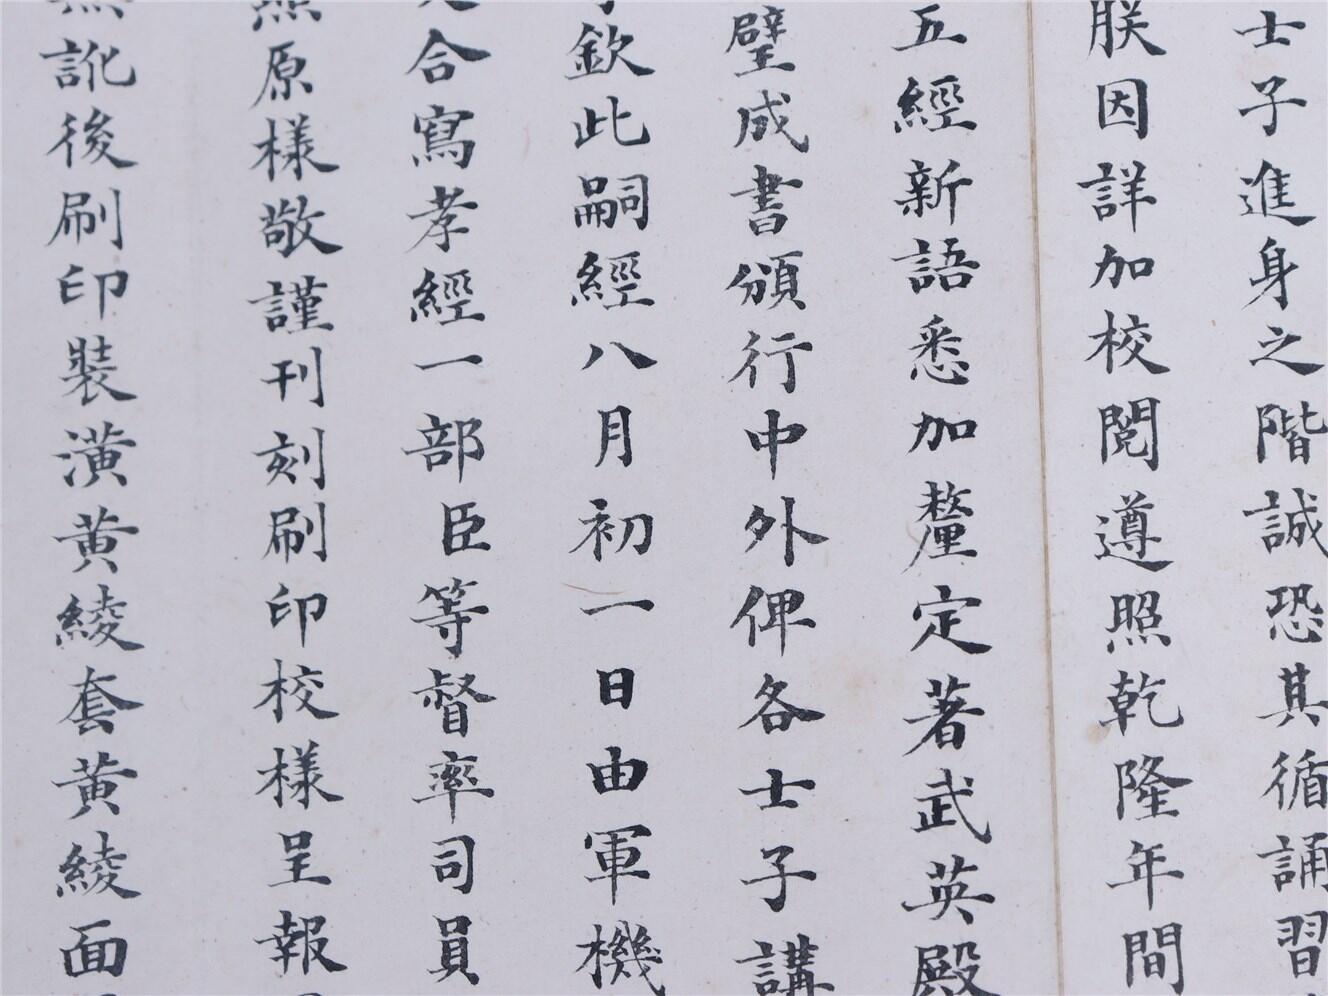 士子進身之階誠恐其循誦習
朕因詳加校閱遵照乾隆年間
五經新語悉加釐定著武英殿
成書頒行中外俾各士子講
欽此嗣經八月初一日由軍機
合寫孝經一部臣等督率司員
原樣敬謹刊刻刷印校樣呈報
訛後刷印裝潢黃綾套黃綾面